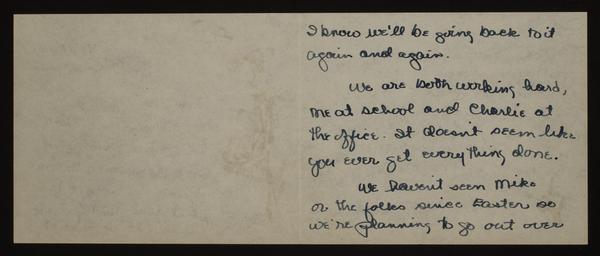 I know we'll be going back to it
again and again.
We are both working hard,
me at school and Charlie at
the office. It doesn't seem like
you ever get everything done.
We haven't seen Mike
or the folks since Easter so
we're planning to go out over